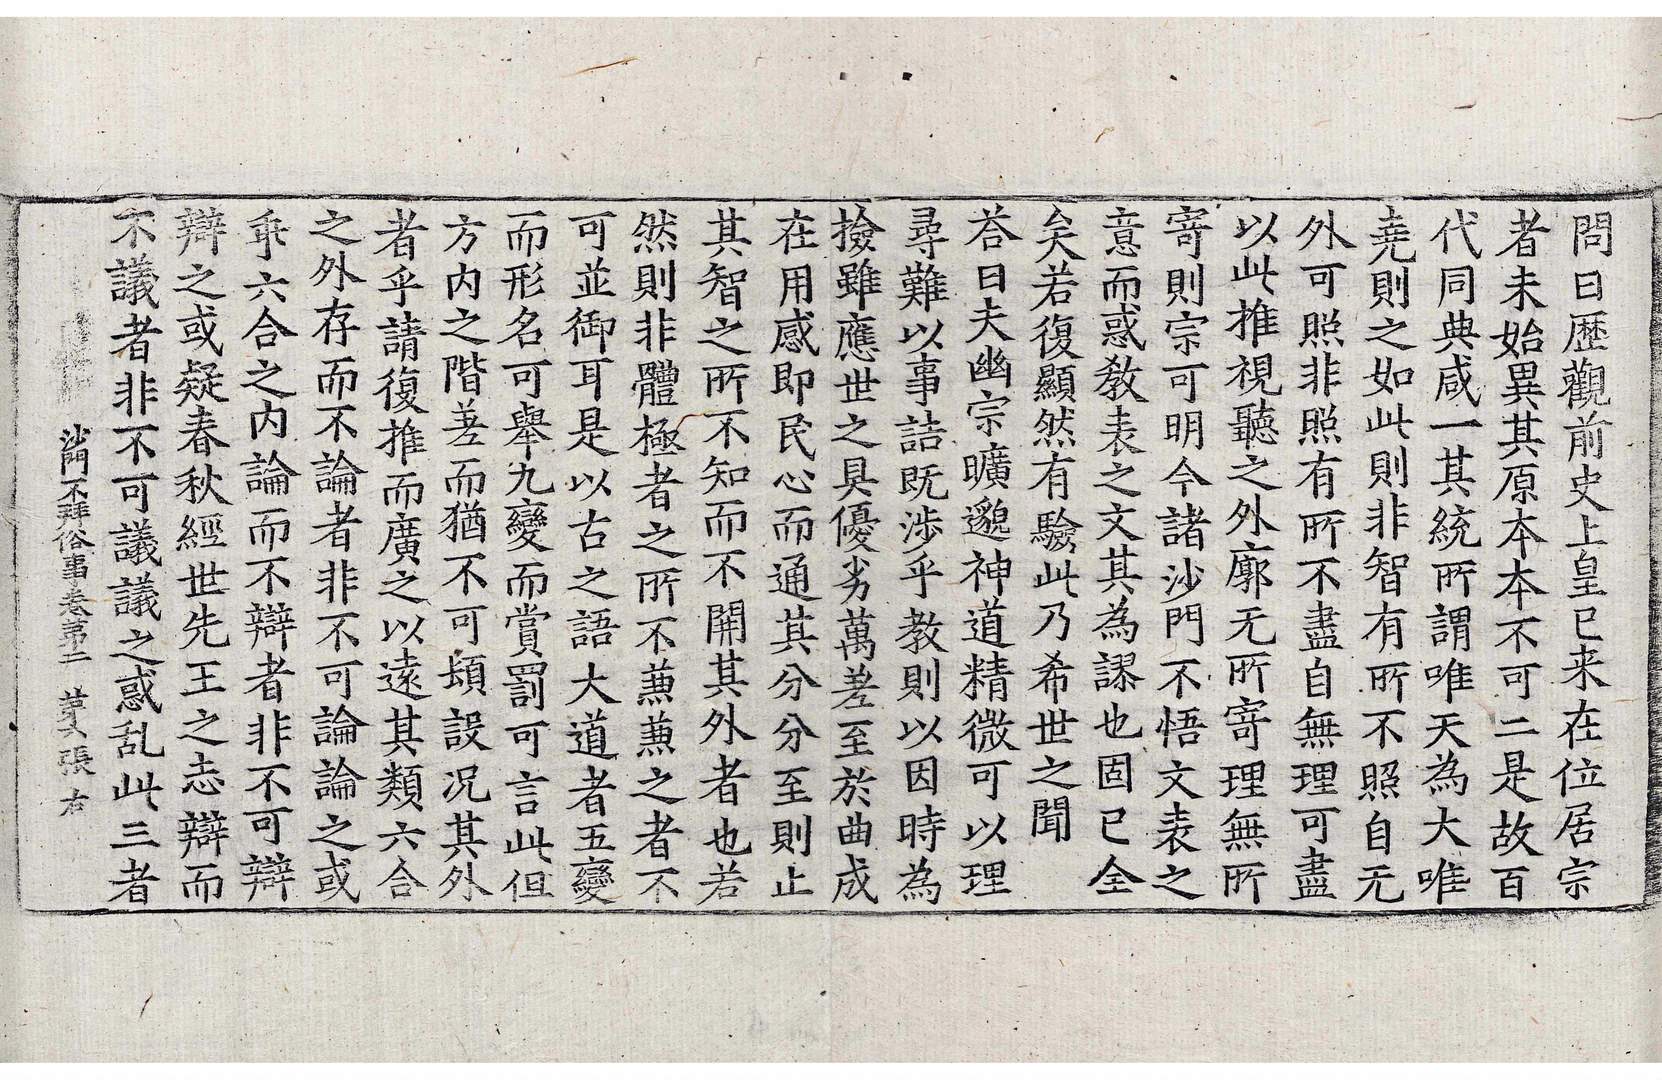 問曰歷觀前史上皇已来在位居宗
者未始異其原本本不可二是故百
代同典咸一其統所謂唯天為大唯
堯則之如此則非智有所不照自无
外可照非照有所不盡自無理可盡
以此推視聽之外廓无所寄理無所
寄則宗可明今諸沙門不悟文表之
意而惑教表之文其為謬也固已全
矣若復顯然有驗此乃希世之聞
荅曰夫幽宗曠邈神道精微可以理
尋難以事詰既涉乎教則以因時為
撿雖應世之具優劣萬差至於曲成
在用感即民心而通其分分至則止
其智之所不知而不開其外者也若
然則非體極者之所不蒹蒹之者不
可並御耳是以古之語大道者五變
而形名可舉九變而賞罰可言此但
方內之階差而猶不可頓設况其外
者乎請復推而廣之以遠其類六合
之外存而不論者非不可論論之或
乖六合之內論而不辯者非不可辯
辯之或疑春秋經世先王之志辯而
不議者非不可議議之惑乱此三者
沙門不拜俗事卷第二 張